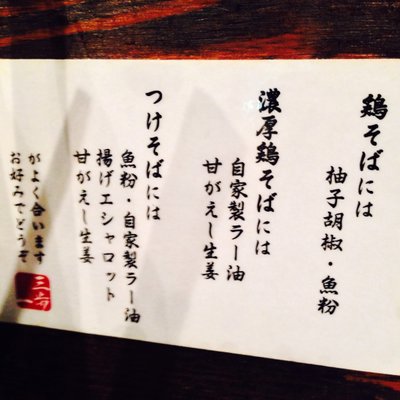 鶏そばには
柚子胡椒・魚粉
濃厚鶏そばには
自家製ラー油
甘がえし生姜
つけそばには
魚粉・自家製ラー油
揚げエシャロット
甘がえし生姜
がよく合います
お好みでどうぞ
三歩一